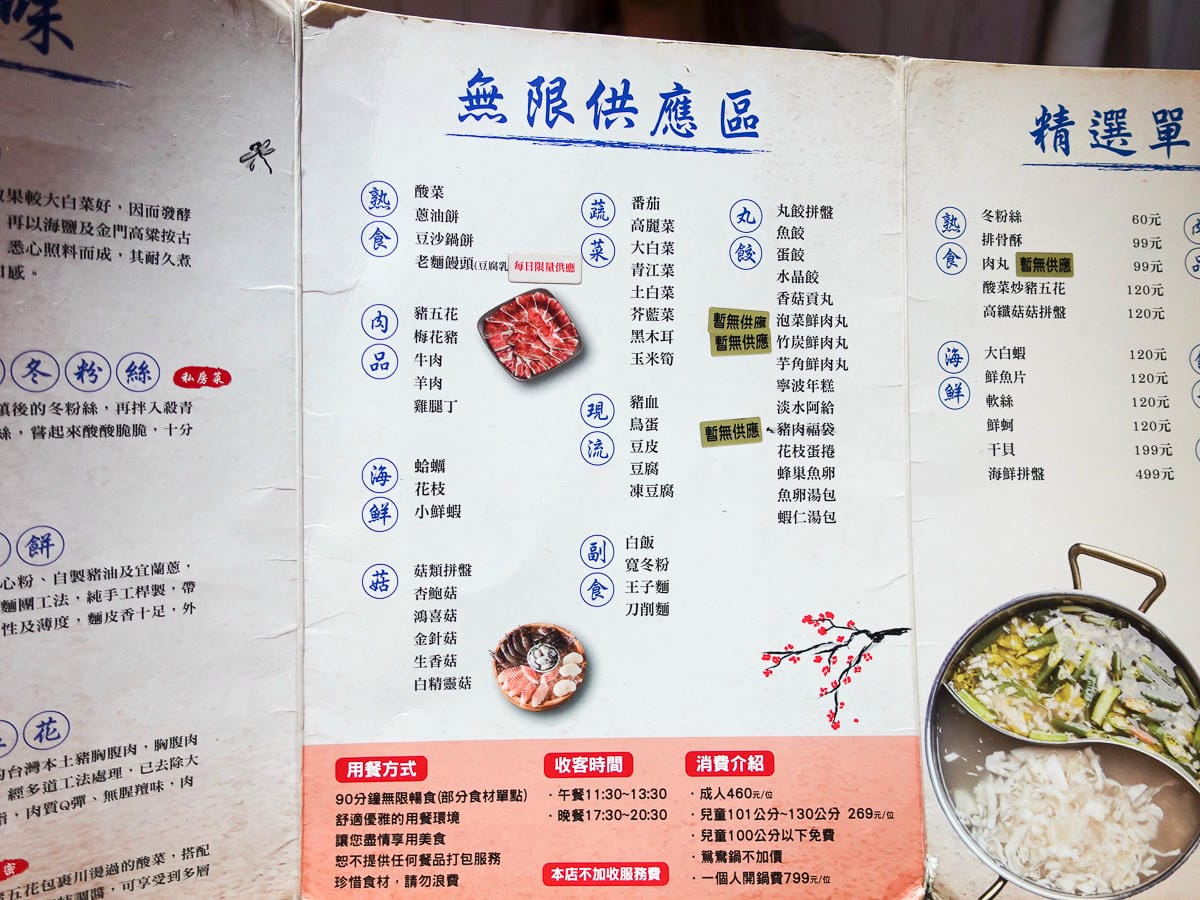 味
果較大白菜好，因而發酵
再以海鹽及金門高粱按古
悉心照料而成，其耐久煮
口感。
冬粉絲 私房菜
後的冬粉絲，再拌入殺青
絲，嘗起來酸酸脆脆，十分
餅
心粉、自製豬油及宜蘭蔥，
麵團工法，純手工桿製，帶
性及薄度，麵皮香十足，外
花
台灣本土豬胸腹肉，胸腹肉
經多道工法處理，已去除大
脂，肉質Q彈、無腥羶味，肉
五花包裹川燙過的酸菜，搭配
調醬，可享受到多層
無限供應區
熟食
酸菜
蔥油餅
豆沙鍋餅
老麵饅頭(豆腐乳
每日限量供應
肉品
豬五花
梅花豬
牛肉
羊肉
雞腿丁
海鮮
蛤蠣
花枝
小鮮蝦
菇
菇類拼盤
杏鮑菇
鴻喜菇
金針菇
生香菇
白精靈菇
蔬菜
番茄
高麗菜
大白菜
青江菜
土白菜
芥藍菜
黑木耳
玉米筍
現流
豬血
鳥蛋
豆皮
豆腐
凍豆腐
副食
白飯
寬冬粉
王子麵
刀削麵
丸餃
丸餃拼盤
魚餃
蛋餃
水晶餃
香菇貢丸
暫無供應 泡菜鮮肉丸
暫無供應 竹炭鮮肉丸
芋角鮮肉丸
寧波年糕
淡水阿給
暫無供應 豬肉福袋
花枝蛋捲
蜂巢魚卵
魚卵湯包
蝦仁湯包
用餐方式
90分鐘無限暢食(部分食材單點)
舒適優雅的用餐環境
讓您盡情享用美食
恕不提供任何餐品打包服務
珍惜食材，請勿浪費
收客時間
·午餐11:30~13:30
·晚餐17:30~20:30
本店不加收服務費
消費介紹
·成人460元/位
·兒童101公分~130公分 269元/位
·兒童100公分以下免費
·鴛鴦鍋不加價
·一個人開鍋費799元/位
精選單
熟食
冬粉絲 60元
排骨酥 99元
肉丸 暫無供應 99元
酸菜炒豬五花 120元
高纖菇菇拼盤 120元
海鮮
大白蝦 120元
鮮魚片 120元
軟絲 120元
鮮蚵 120元
干貝 199元
海鮮拼盤 499元